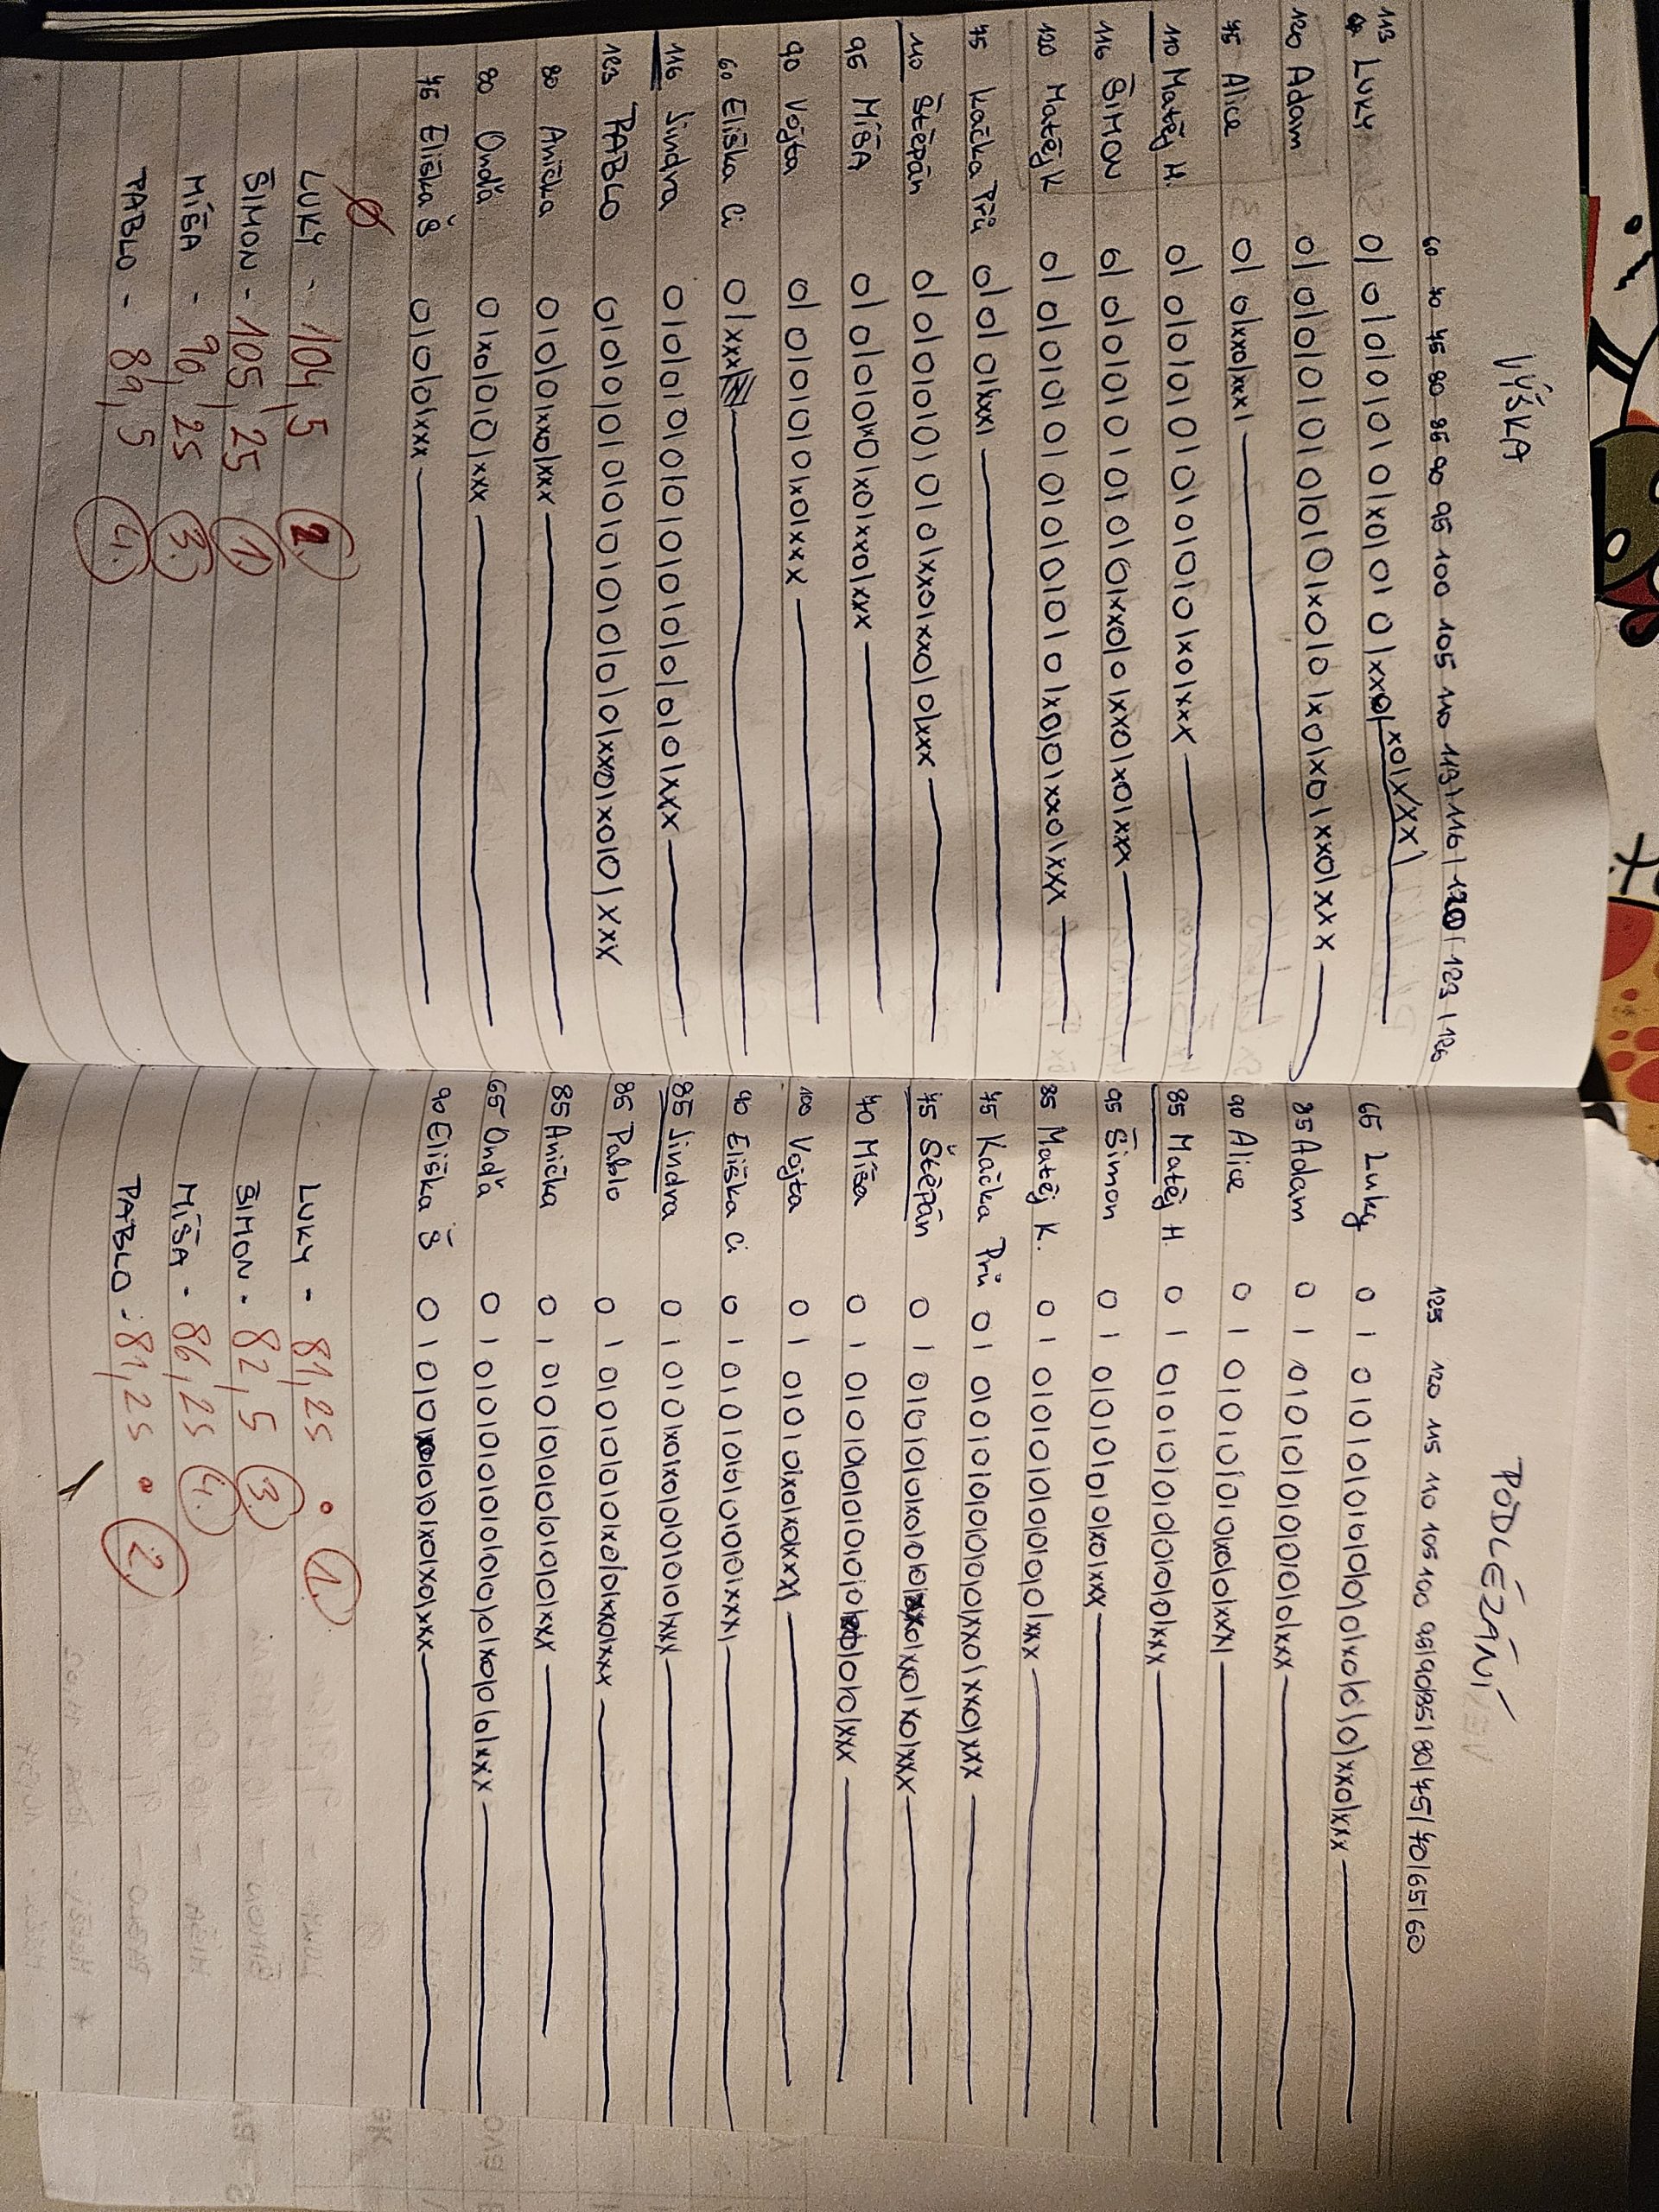 VÝŠKA
60 70 75 80 85 90 95 100 105 110 113 | 116 | 120 | 123 | 126
113 LUKY 0| 0| 0| 0| 0| 0| x0| 0| 0| xx0| x0| xxx|
120 Adam 0| 0| 0| 0| 0| 0| 0| 0| x0| 0| x0| x0| xx0| xxx
75 Alice 0| 0| xx0| xxx|
110 Matěj H. 0| 0| 0| 0| 0| 0| 0| 0| 0| x0| xxx
116 ŠIMON 0| 0| 0| 0| 0| 0| 0| 0| xx0| 0| xx0| x0| xxx
120 Matěj K 0| 0| 0| 0| 0| 0| 0| 0| 0| 0| x0| 0| xx0| xxx
75 Kačka Prů 0| 0| 0| xxx|
110 Štěpán 0| 0| 0| 0| 0| 0| 0| xx0| xx0| 0| xxx
95 MÍŠA 0| 0| 0| 0| x0| x0| xx0| xxx
90 Vojta 0| 0| 0| 0| 0| x0| xxx
60 Eliška Ci 0| xxx|
116 Jindra 0| 0| 0| 0| 0| 0| 0| 0| 0| 0| 0| 0| xxx
123 PABLO 0| 0| 0| 0| 0| 0| 0| 0| 0| 0| 0| xx0| x0| 0| xxx
80 Anička 0| 0| 0| xx0| xxx
80 Ondra 0| x0| 0| 0| xxx
75 Eliška Š 0| 0| 0| xxx
Ø
LUKY - 104,5 2.
ŠIMON - 105,25 1.
MÍŠA - 90,25 3.
PABLO - 89,5 4.
PODLÉZÁNÍ
125 120 115 110 105 100 95 | 90 | 85 | 80 | 75 | 70 | 65 | 60
65 Luky 0 | 0| 0| 0| 0| 0| 0| 0| x0| 0| 0| xx0| xxx
85 Adam 0 | 0| 0| 0| 0| 0| 0| 0| 0| xxx
90 Alice 0 | 0| 0| 0| 0| 0| x0| 0| xxx|
85 Matěj H. 0 | 0| 0| 0| 0| 0| 0| 0| 0| xxx
95 Šimon 0 | 0| 0| 0| 0| 0| x0| xxx
85 Matěj K. 0 | 0| 0| 0| 0| 0| 0| 0| 0| xxx
75 Kačka Prů 0| 0| 0| 0| 0| 0| 0| 0| 0| xx0| xx0| xxx
75 Štěpán 0 | 0| 0| 0| 0| x0| 0| 0| xx0| xx0| x0| xxx
70 Míša 0 | 0| 0| 0| 0| 0| 0| 0| 0| 0| 0| 0| xxx
100 Vojta 0 | 0| 0| 0| x0| x0| xxx|
90 Eliška Ci 0 | 0| 0| 0| 0| 0| 0| 0| xxx|
85 Jindra 0 | 0| 0| x0| x0| 0| 0| 0| 0| xxx|
85 Pablo 0 | 0| 0| 0| 0| x0| 0| 0| xx0| xxx
85 Anička 0 | 0| 0| 0| 0| 0| 0| 0| 0| xxx
65 Ondra 0 | 0| 0| 0| 0| 0| 0| 0| 0| x0| 0| 0| 0| xxx
90 Eliška Š 0 | 0| 0| x0| 0| 0| x0| x0| xxx
LUKY - 81,25 • 1.
ŠIMON - 82,5 3.
MÍŠA - 86,25 4.
PABLO - 81,25 • 2.